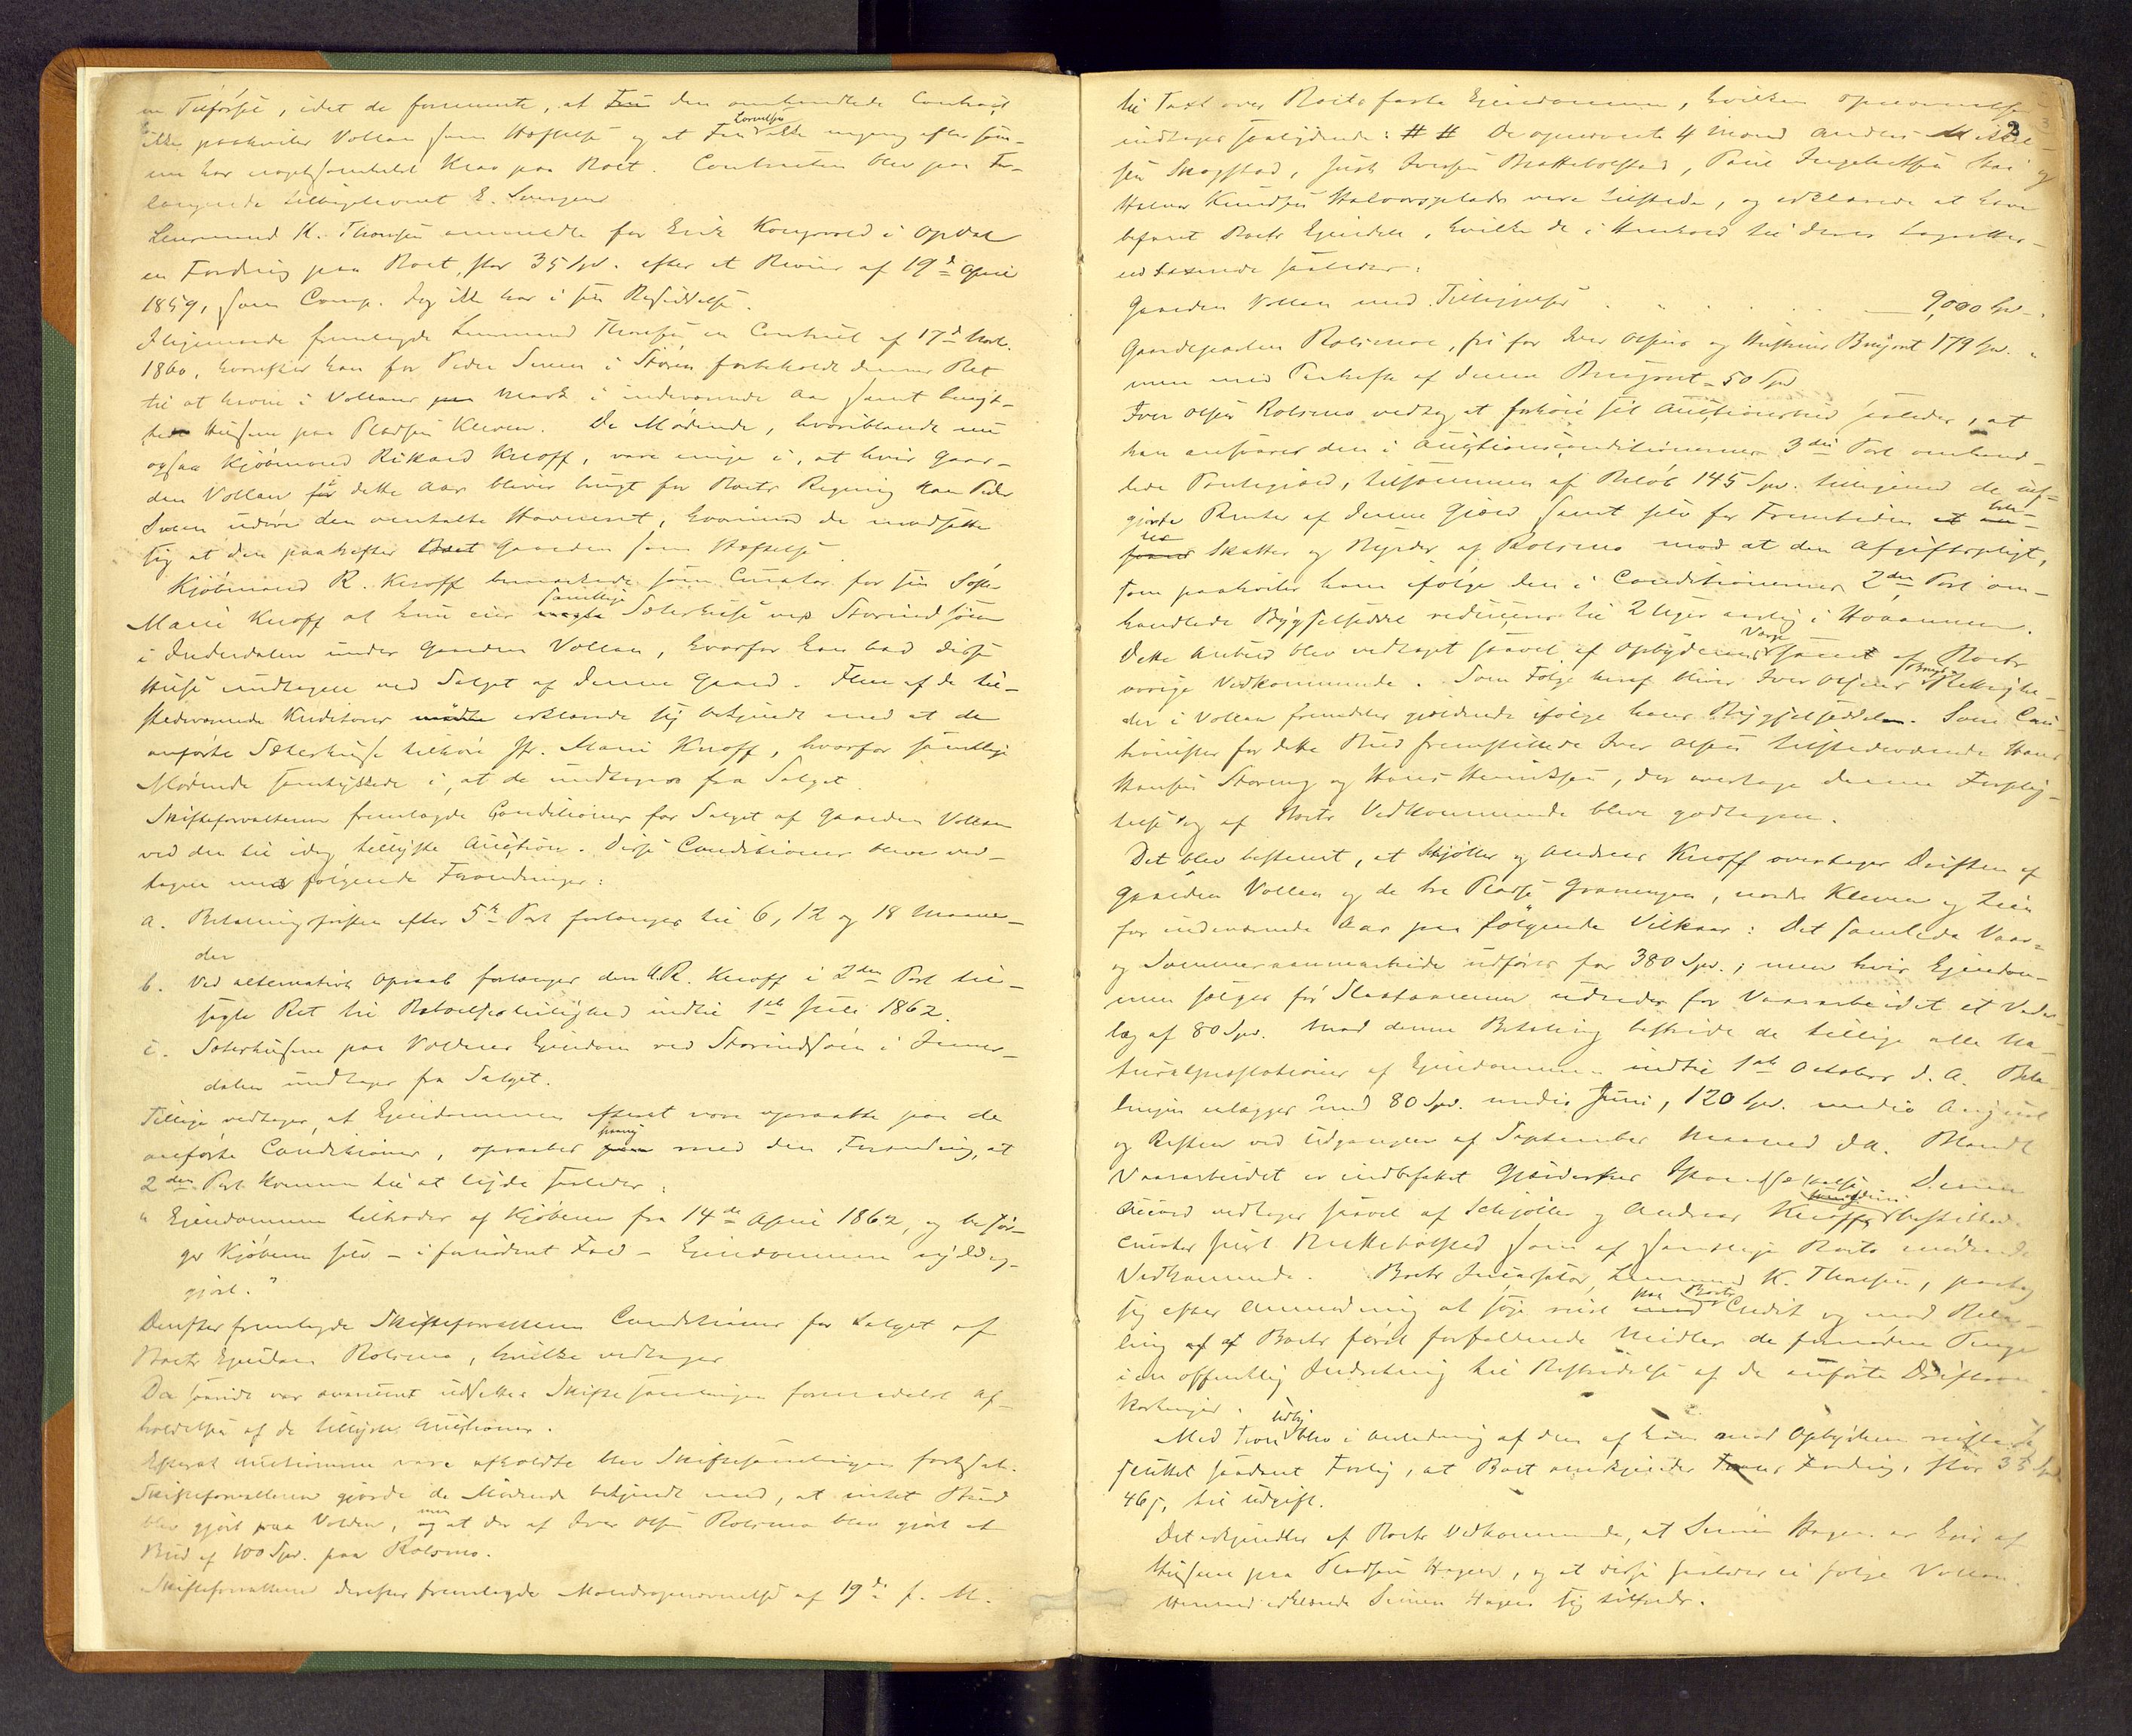 en Tilførsel, idet de formente, at den omhandlede Contract
ikke paahviler Vollan som Heftelse og at Fru Cornelia ikke engang efter sam-
me har nogetsomhelst Krav paa Boet. Contracten blev paa For-
langende tilbageleveret E. Svensen
Lensmand K. Thonsen anmeldte for Erik Kongsvold i Opdal
en Fordring paa Boet, stor 35 Spd. efter et Bevis af 19de April
1859, som Comp. dog ikke har i sin Besiddelse.
Iligemaade fremlagde Lensmand Thonsen en Contract af 17de Novb.
1860, hvorefter han for Peder Sveen i Støren forbeholdt denne Ret
til at havne i Vollans Mark i indeværende Aar samt benyt-
te Husene paa Pladsen Kleven. De Mødende, hvoriblandt nu
ogsaa Kjøbmand Rikard Knoff, vare enige i, at hvis Gaar-
den Vollan for dette Aar bliver brugt for Boets Regning kan Peder
Sveen udøve den omtalte Havneret, hvorimod de modsatte
sig at den paahefter Gaarden som Heftelse.
Kjøbmand R. Knoff bemærkede som Curator for sin Søster
Marie Knoff at hun eier samtlige Sæterhuse ved Storindsøen
i Inderdalen under Gaarden Vollan, hvorfor han bad disse
Huse undtagne ved Salget af denne Gaard. Flere af de til-
stedeværende Kreditorer erklærede sig bekjendt med at de
anførte Sæterhuse tilhøre Fr. Marie Knoff, hvorfor samtlige
Mødende samtykkede i, at de undtages fra Salget.
Skifteforvalteren fremlagde Conditioner for Salget af Gaarden Vollan
ved den til idag tillyste Auction. Disse Conditioner bleve ved-
tagne med følgende Forandringer:
a. Betalingsfristen efter 5te Post forlænges til 6, 12 og 18 Maane-
der
b. Ved alternativt Opraab forlænges den A. R. Knoff i 2den Post til-
sagte Ret til Beboelsesleilighed indtil 1ste Juli 1862.
c. Sæterhusene paa Voldens Eiendom ved Storindsøen i Inner-
dalen undtages fra Salget.
Tillige vedtages, at Eiendommene efterat være opraabte paa de
anførte Conditioner, opraabes paany med den Forandring, at
2den Post kommer til at lyde saaledes:
"Eiendommen tiltrædes af Kjøberen fra 14de April 1862, og besør-
ger Kjøberen selv - i fornødent Fald - Eiendommene ryddig-
gjort."
Derefter fremlagde Skifteforvalteren Conditioner for Salget af
Boets Eiendom Rolsmo, hvilke vedtages
Da saavidt var avanceret udsattes Skiftesamlingen formedelst Af-
holdelsen af de tillyste Auctioner.
Efterat Auctionerne vare afholdte blev Skiftesamlingen fortsat.
Skifteforvalteren gjorde de Mødende bekjendt med, at intet Bud
blev gjort paa Volden, men at der af Iver Olsen Rolsmo blev gjort et
Bud af 100 Spd. paa Rolsmo.
Skifteforvalteren derefter fremlagde Mandsopnævnelse af 19de f. M.
2
til Taxt over Boets faste Eiendomme, hvilken Opnævnelse
indtages saalydende: # # De opnævnte 4 Mænd Anders Mikkel-
sen Skogstad, Just Iversen Brattebolstad, Paul Ingebretsen og
Halvor Knudsen Halvorsplads vare tilstede, og erklærede at have
befaret Boets Eiendele, hvilke de i Henhold til deres Lagretter-
ed taxerede saaledes:
Gaarden Vollan med Tilliggelser . . . . . 9,000 Spd.
Gaardparten Rolsmo, fri for Iver Olsens og Hustrues Brugsret 179 Spd.
men med Paahefte af denne Brugsret - 50 Spd
Iver Olsen Rolsmo vedtog at forhøie sit Auctionsbud saaledes, at
han ansvarer den i Auctionsconditionernes 3die Post omhand-
lede Pantegjæld, tilsammen af Beløb 145 Spd. tilligemed de
Renter af denne Gjæld samt selv for Fremtiden
Skatter og Byrder af Rolsmo mod at den Afgiftspligt,
som paahviler ham ifølge den i Conditionernes 2den Post om-
handlede Bygselseddel reduceres til 2 Uger aarlig i Vaaronnen.
Dette Anbud blev vedtaget saavel af Opbyderens Værge samt af Boets
øvrige Vedkommende. Som Følge heraf bliver Iver Olsens Brugs Rettighe-
der i Vollan fremdeles gjældende ifølge hans Bygselseddel. Som Cau-
tionister for dette Bud fremstillede Iver Olsen tilstedeværende Hans
Hansen Storeng og Hans Henriksen, der overtage denne Forplig-
telse og af Boets Vedkommende bleve godtagne.
Det blev bestemt, at Schjøller og Andreas Knoff overtager Driften af
Gaarden Vollan og de tre Pladse Graneengen, nordre Kleven og Lien
for indeværende Aar paa følgende Vilkaar: Det samlede Vaar-
og Sommeraarsarbeide udføres for 380 Spd.; men hvis Eiendom-
men sælges før Slaataannen udredes for Vaararbeidet et Veder-
lag af 80 Spd. Mod denne Betaling bestride de tillige alle Na-
turalpræstationer af Eiendommen indtil 1ste October d. A. Beta-
lingen erlægges med 80 Spd. medio Juni, 120 Spd. medio August
og Resten ved Udgangen af September Maaned d. A. Blandt
Vaararbeidet er indbefattet Gjærdernes Istandsættelse. Denne
Accord vedtages saavel af Schjøller og Andreas Knoffs beskikkede
Curator Just Brattebolstad som af samtlige Boets mødende
Vedkommende. Boets Incassator, Lensmand K. Thonsen, paatog
sig efter Anmodning at søge reist paa Boets Credit og mod Beta-
ling af Boets først forfaldende Midler de fornødne Penge
i en offentlig Indretning til Bestridelse af de anførte Driftsom-
kostninger.
Med blev i Anledning af den af ham mod Opbyderen reiste
sluttet saadant Forlig, at Boet anerkjender Fordring, stor 35 Spd
46 s, til Udgift.
Det erkjendtes af Boets Vedkommende, at Simen Hagen er Eier af
Husene paa Pladsen Hagen, og at disse saaledes ei følge Vollan.
Hermed erklærede Simen Hagen sig tilfreds.